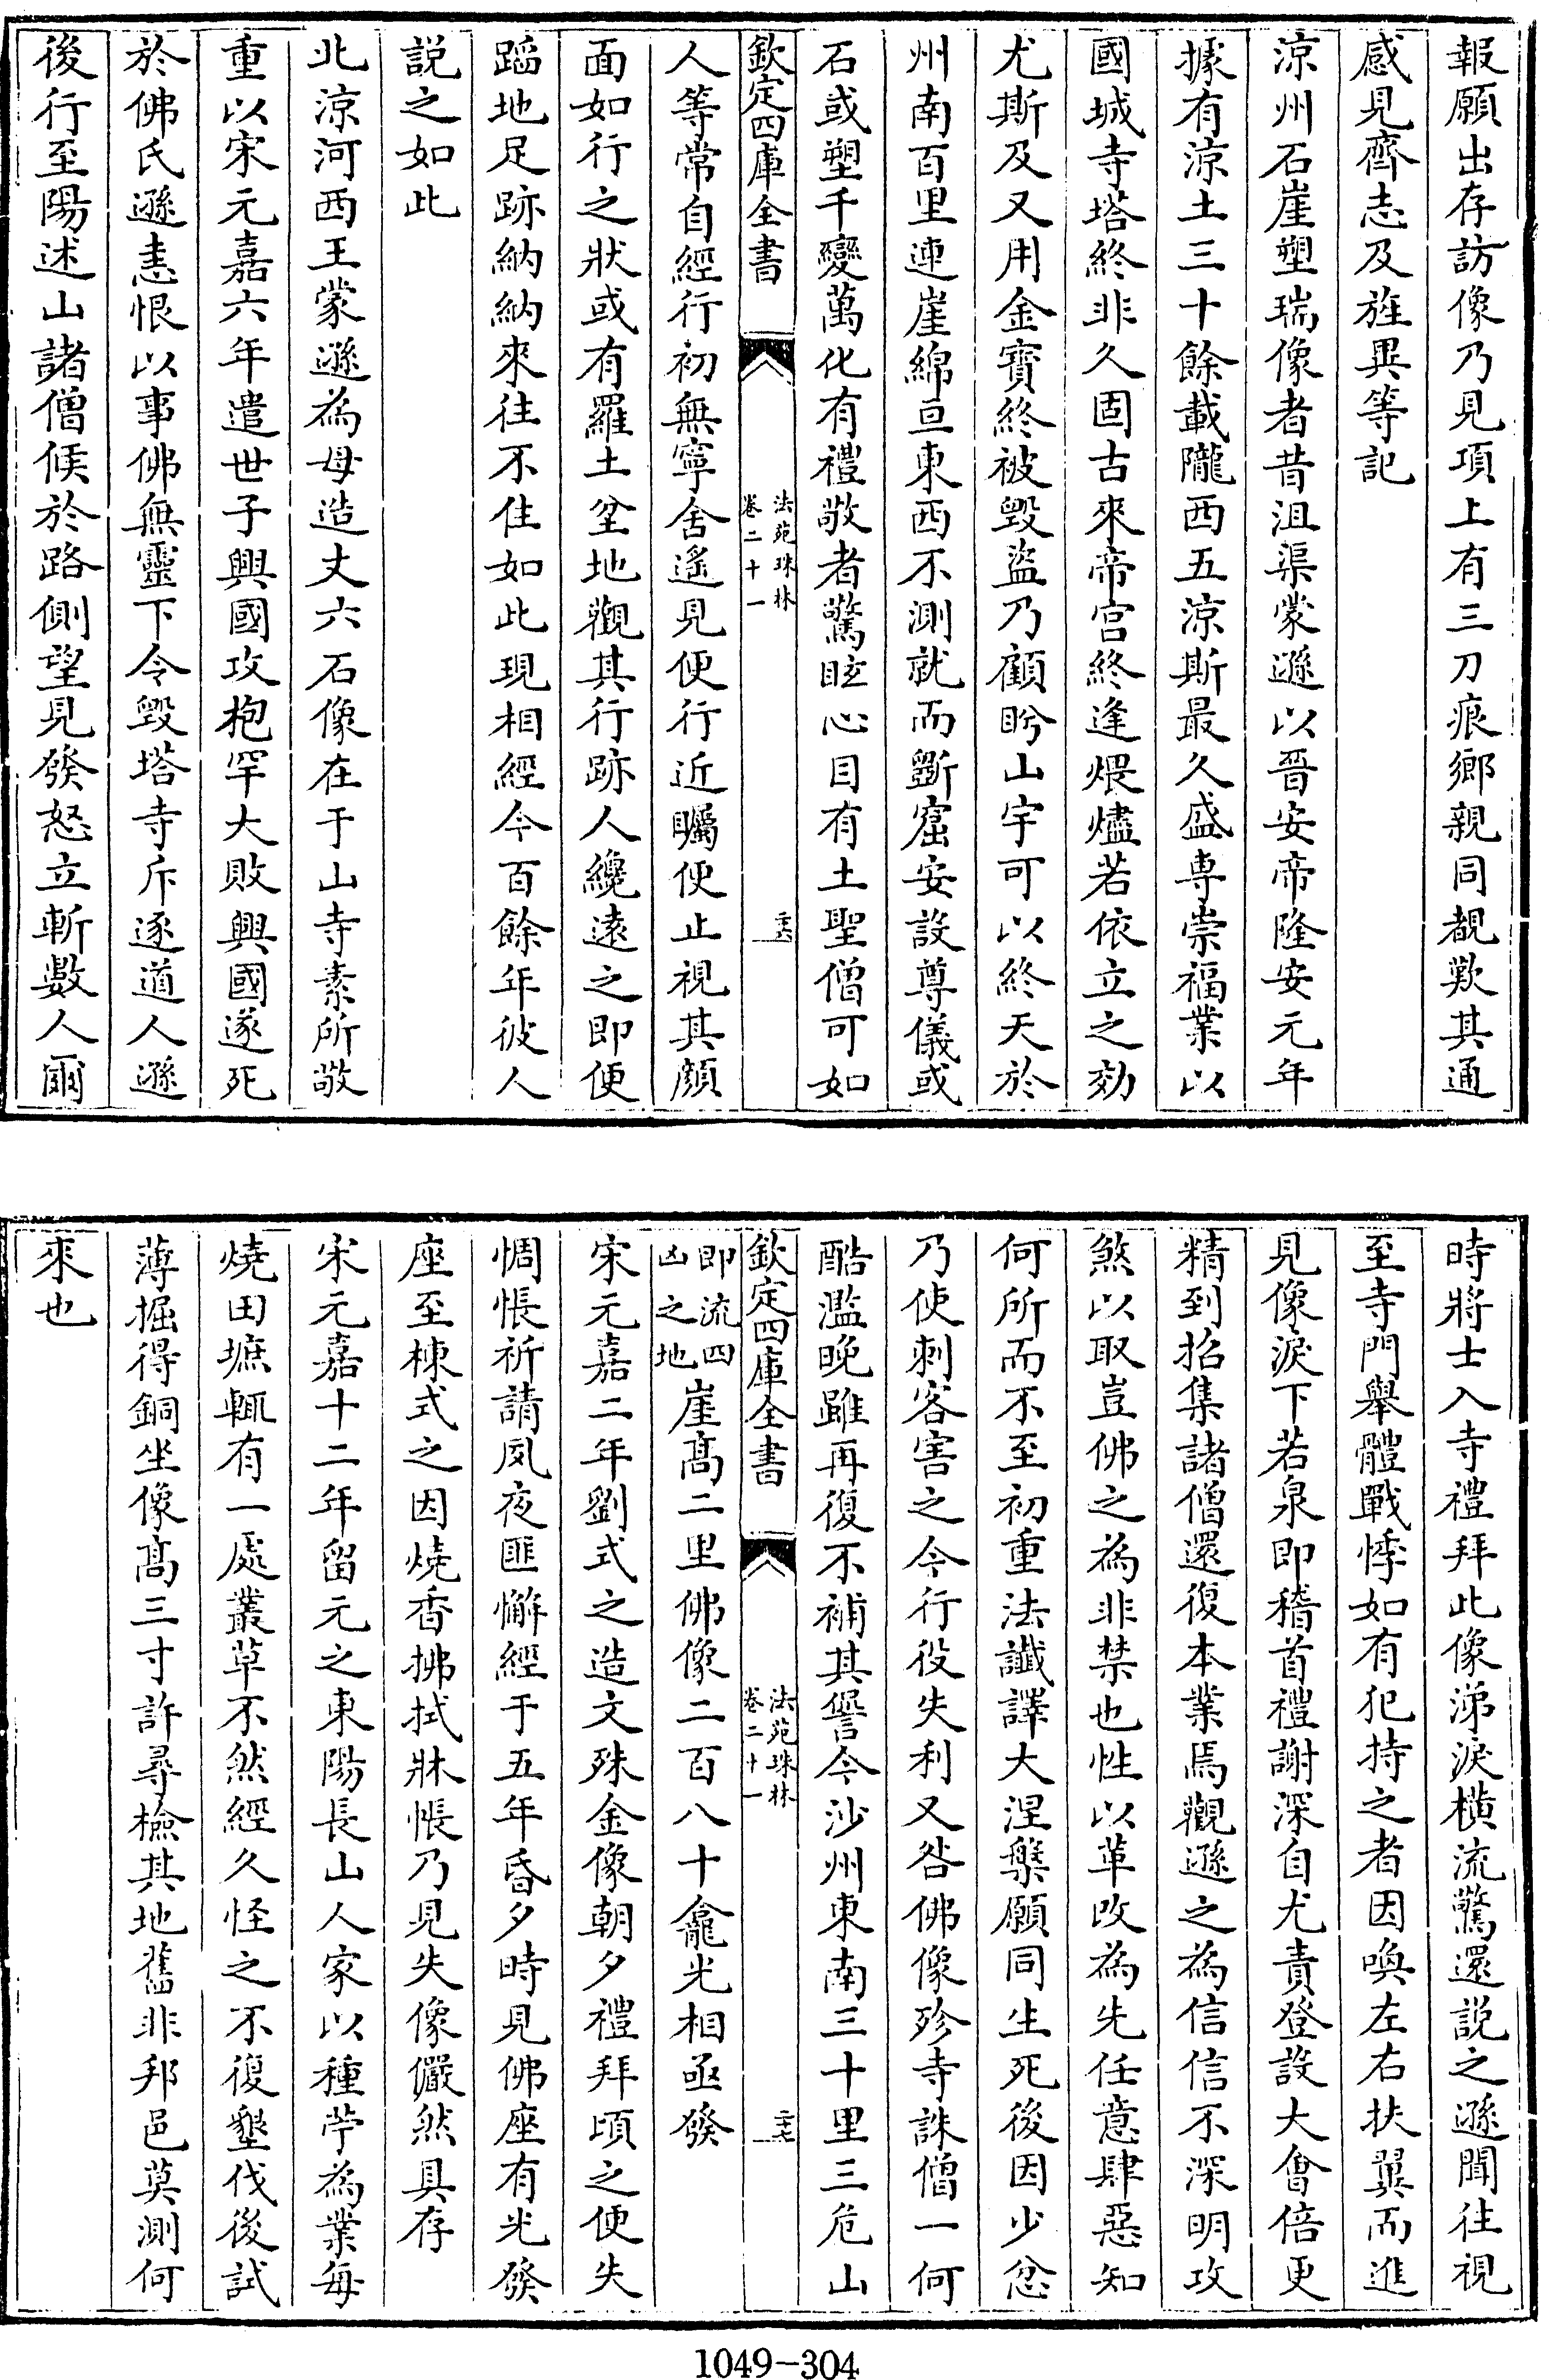 報願出存訪像乃見項上有三刀痕鄉親同覩歎其通
感見齊志及旌異等記
涼州石崖塑瑞像者昔沮渠蒙遜以晉安帝隆安元年
據有涼土三十餘載隴西五涼斯最久盛專崇福業以
國城寺塔終非久固古來帝宫終逢煨燼若依立之効
尤斯及又用金寶終被毁盜乃顧眄山宇可以終天於
州南百里連崖綿亘東西不測就而斲窟安設尊儀或
石或塑千變萬化有禮敬者驚眩心目有土聖僧可如
欽定四庫全書
法苑珠林
卷二十一
二十六
人等常自經行初無寧舍遙見便行近矚便止視其顔
面如行之狀或有羅土坌地觀其行跡人纔遠之即便
蹈地足跡納納來往不住如此現相經今百餘年彼人
説之如此
北涼河西王蒙遜為母造丈六石像在于山寺素所敬
重以宋元嘉六年遣世子興國攻枹罕大敗興國遂死
於佛氏遜恚恨以事佛無靈下令毁塔寺斥逐道人遜
後行至陽述山諸僧候於路側望見發怒立斬數人爾
時將士入寺禮拜此像涕淚横流驚還説之遜聞往視
至寺門舉體戰悸如有犯持之者因喚左右扶翼而進
見像淚下若泉即稽首禮謝深自尤責登設大會倍更
精到招集諸僧還復本業焉觀遜之為信信不深明攻
煞以取豈佛之為非禁也性以革改為先任意肆惡知
何所而不至初重法讖譯大涅槃願同生死後因少忿
乃使刺客害之今行役失利又咎佛像殄寺誅僧一何
酷濫晚雖再復不補其譽今沙州東南三十里三危山
欽定四庫全書
法苑珠林
卷二十一
二十七
即流四
凶之地
崖髙二里佛像二百八十龕光相亟發
宋元嘉二年劉式之造文殊金像朝夕禮拜頃之便失
惆悵祈請夙夜匪懈經于五年昏夕時見佛座有光發
座至棟式之因燒香拂拭牀帳乃見失像儼然具存
宋元嘉十二年留元之東陽長山人家以種苧為業每
燒田墌輒有一處叢草不然經久怪之不復墾伐後試
薄掘得銅坐像髙三寸許尋檢其地舊非邦邑莫測何
來也
1049-304